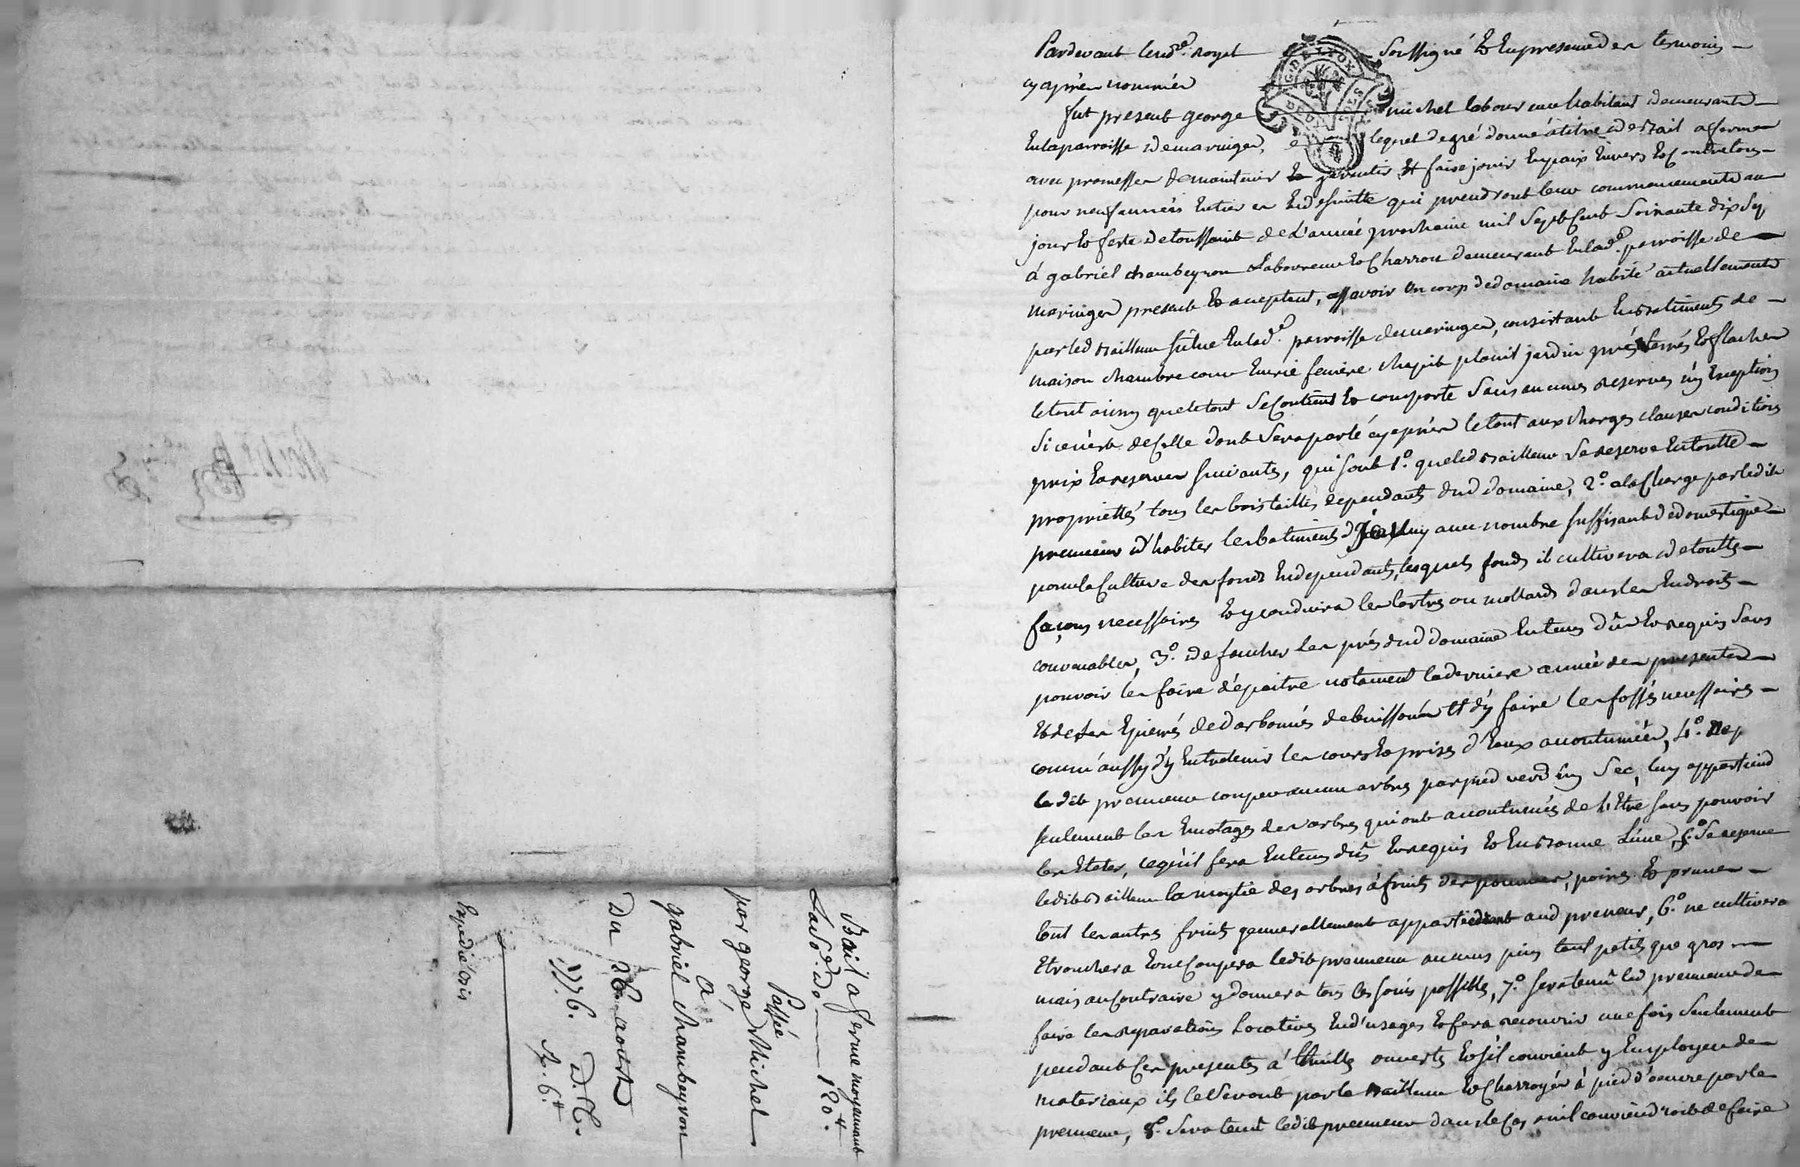 Pardevant le no.re royal soussigné et en presence des temoins
cy après nommés
fut present george michel laboureur habitant demeurant
en la parroisse de maringes, lequel de gré donne à titre de bail a ferme
avec promesses de maintenir et garentir et faire jouir en paix envers et contre tous
pour neuf années entieres qui prendront leur commencement au
jour et feste de toussaint de l'année prochaine mil sept cent soixante dix sept
à gabriel chambeyron laboureur et charron demeurant en lad. parroisse de
maringes present et acceptant, assavoir un corps de domaine habité actuellement
par led bailleur situé en lad. parroisse de maringes, consistant en batiments de
maison chambre cour ecurie feniere chapit jardin prés terres et flaches
le tout ainsy que le tout se contient et comporte sans aucunes reserves ny exception
si ce n'est de celle dont sera parlé cy après le tout aux charges clauses conditions
prix et reserves suivants, qui sont 1.o que led bailleur se reserve en toutte
proprietté tous les bois taillis dependants dud domaine, 2.o a la charge par ledit
preneur d'habiter les batiments avec nombre suffisant de domestiques
pour la culture des fonds en dependants, lesquels fonds il cultivera de touttes
façons necessaires et y conduira les tertres ou mollards dans les endroits
convenables, 3.o de faucher les prés dud domaine en tems dû et requis sans
pouvoir les faire dépaitre notament la derniere année des presentes
et de les epierrés dedarbonnés debuissonér et d'y faire les fossés necessaires
comm'aussy d'y entretenir les cours et prises d'eaux accoutumées, 4.o ne
ledit preneur couper aucun arbres par pied verd ny sec, luy appartiend
seulement les emotages des arbres qui ont accoutumés de l'etre sans pouvoir
les eteter, ce qu'il fera en tems dû et requis et en bonne lune, 5.o se reserve
ledit bailleur la moytié des arbres à fruits des pommes, poires et prunes
tout les autres fruits generallement appartiendront aud preneur, 6.o ne cultivera
etronchera et ne coupera ledit preneur aucuns pins tant petits que gros
mais au contraire y donnera tous les soins possibles, 7.o sera tenu led preneur de
faire les reparations locatives et d'usages et fera recouvrir une fois seulement
pendant ces presentes à thuille ouverts et s'il convient y employer de
materiaux ils le seront par le bailleur et charroyés à pied d'oeuvre par le
preneur, 8.o sera tenu ledit preneur dans le cas ou il conviendroit de faire
Bail a ferme moyennant
120 lt.
Passée
par george Michel
a
gabriel chambeyron
Du 26 aoust
1776.
Expedié